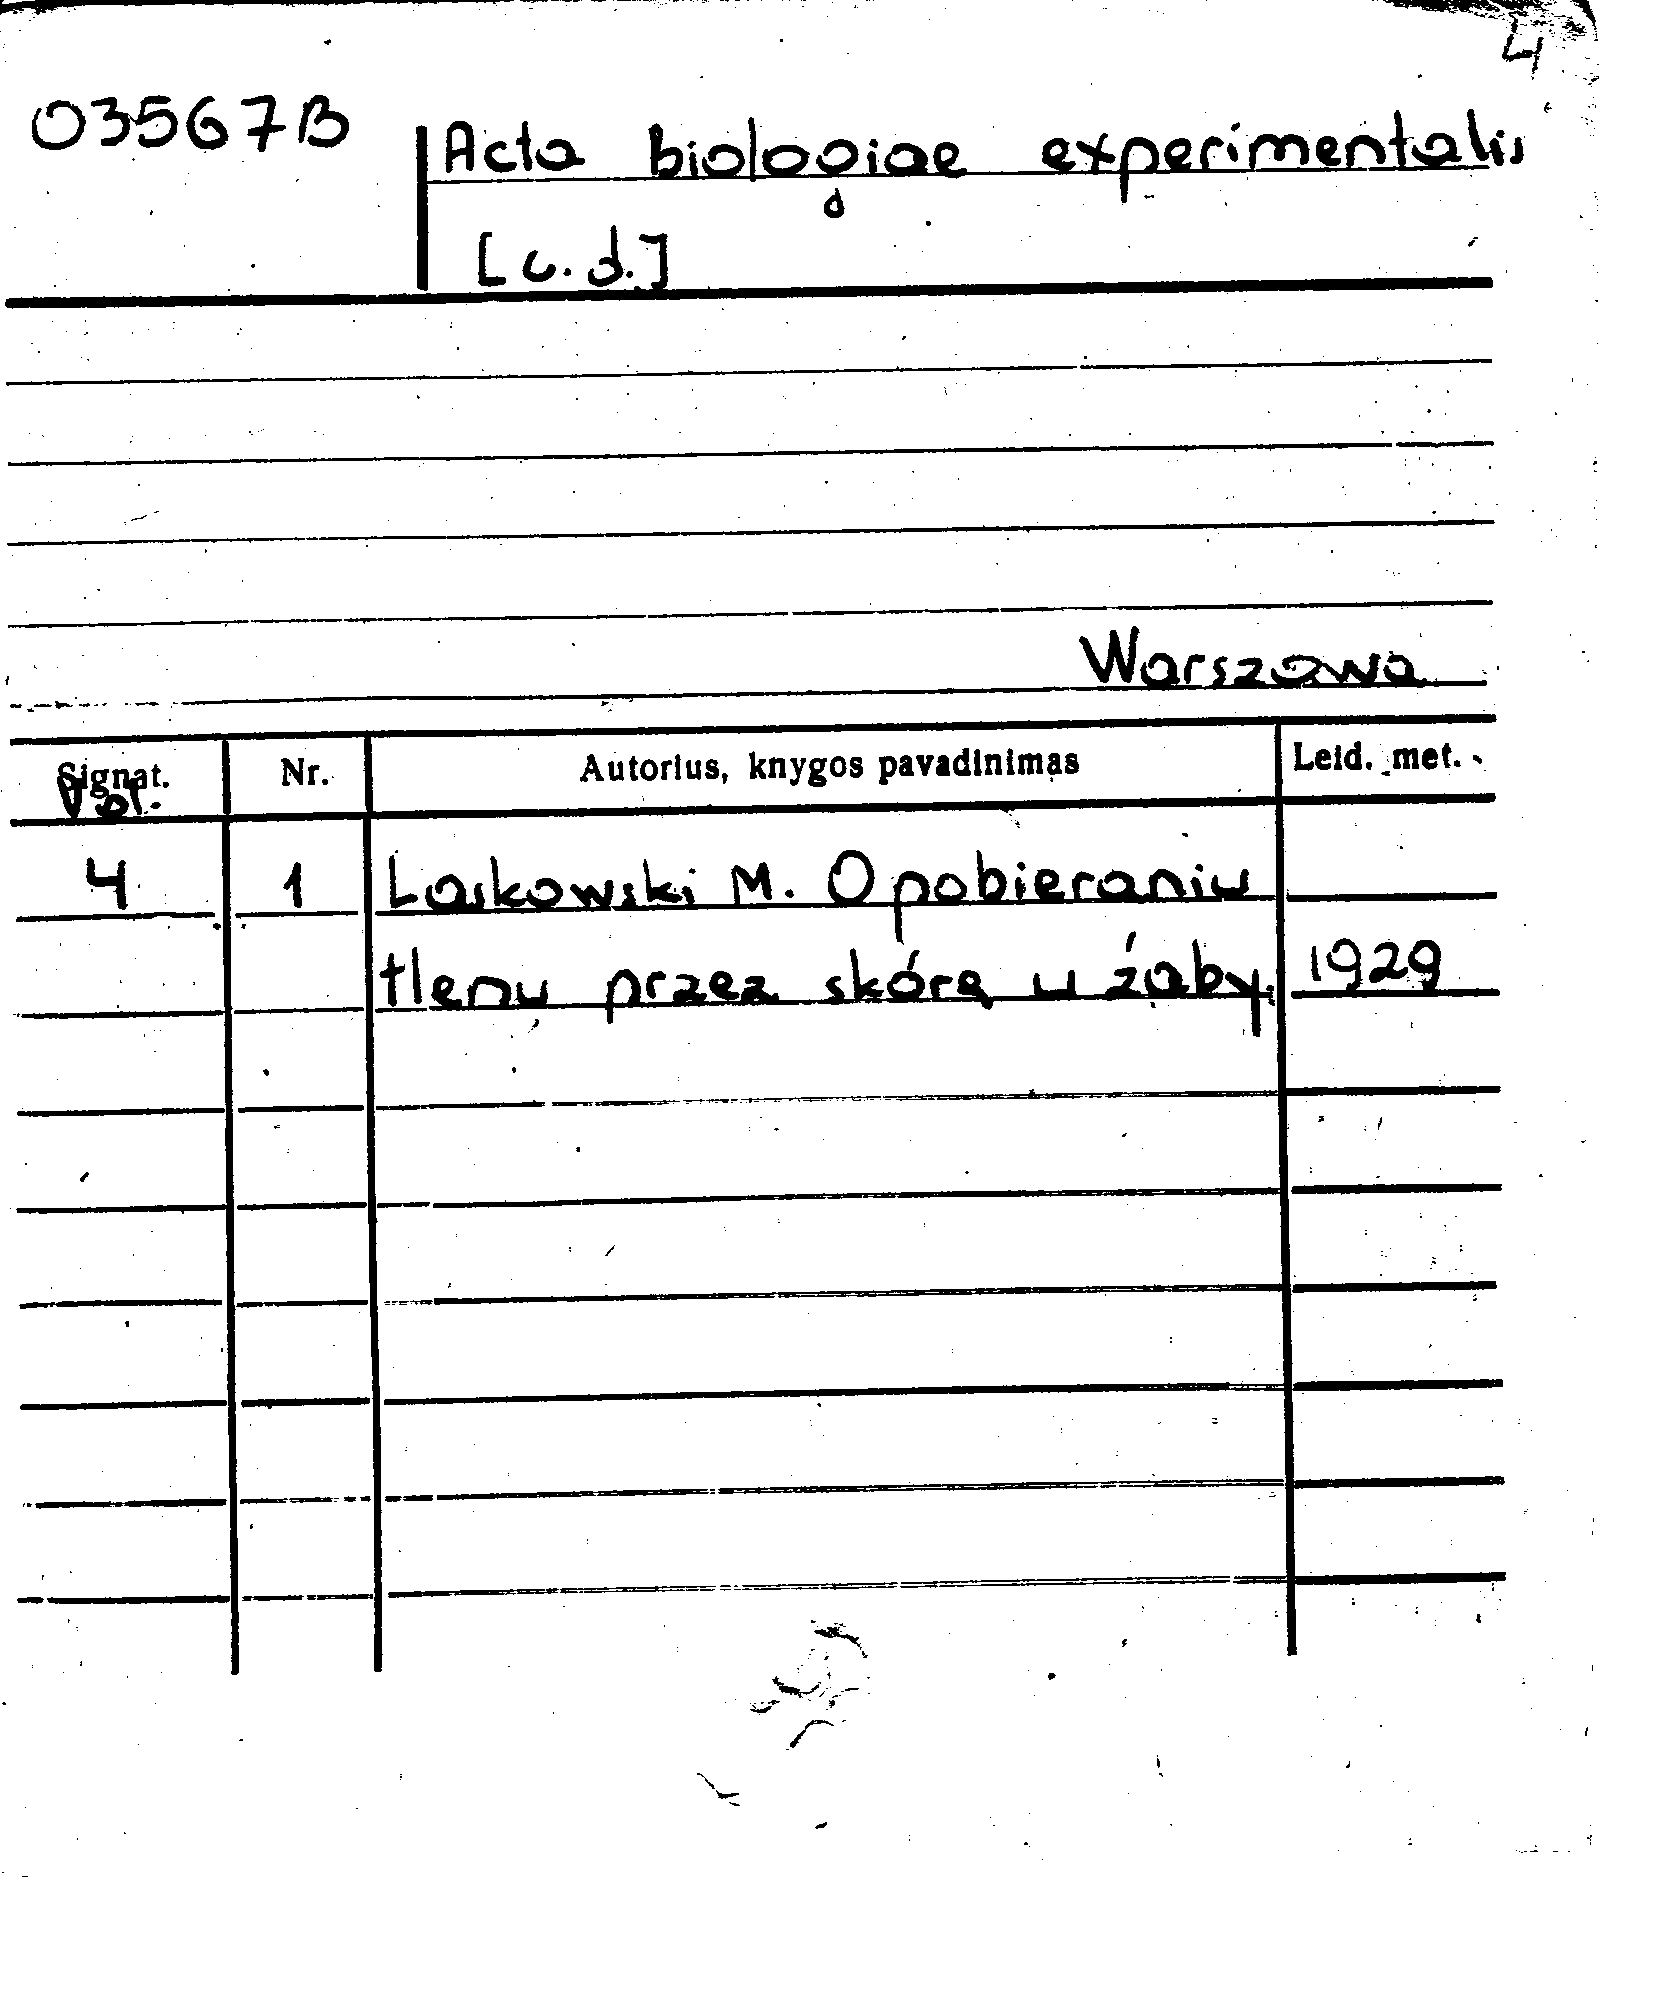 4
03567B
Acta biologiae experimentalis
[c.d.]
Warszawa
Signat. Nr. Autorius, knygos pavadinimas Leid. met.
Vol.
4 1 Laskowski M. O pobieraniu
tlenu przez skórę u żaby. 1929